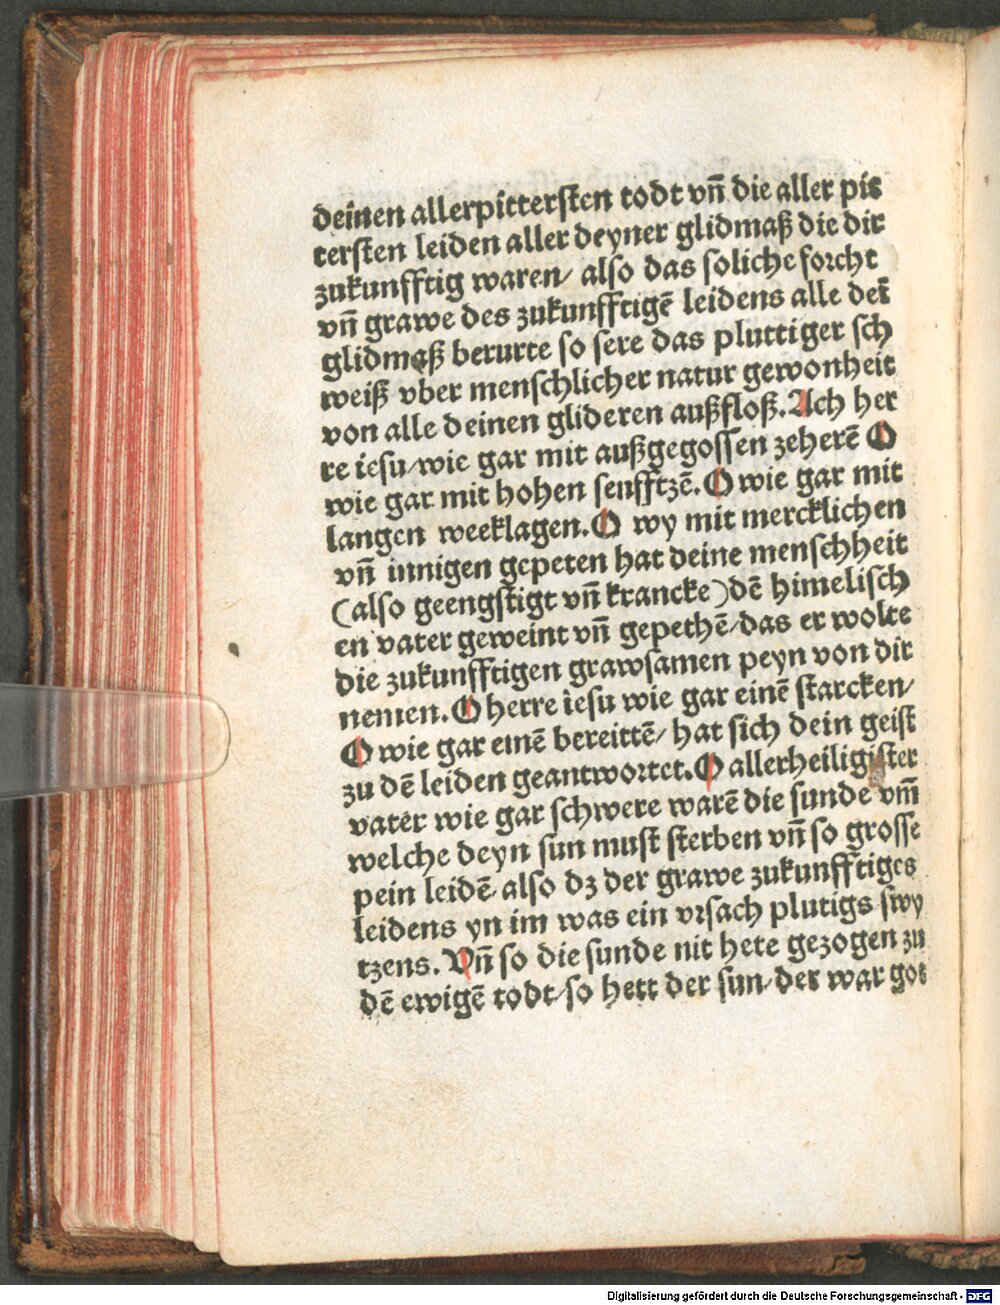 deinen allerpittersten todt vn̄ die aller pit
tersten leiden aller deyner glidmaß die dir
zukunfftig waren/ also das soliche forcht
vn̄ grawe des zukunfftigē leidens alle dei̅
glidmaß berurte so sere das pluttiger sch
weiß vber menschlicher natur gewonheit
von alle deinen glideren außfloß. Ach her
re iesu/wie gar mit außgegossen zeherē O
wie gar mit hohen seufftzē. O wie gar mit
langen weeklagen. O wy mit mercklichen
vn̄ innigen gepeten hat deine menschheit
(also geengstigt vn̄ krancke) dē himelisch
en vater geweint vn̄ gepethē/das er wolte
die zukunfftigen grawsamen peyn von dir
nemen. O herre iesu wie gar einē starcken/
O wie gar einē bereittē/ hat sich dein geist
zu dē leiden geantwortet. O allerheiligister
vater wie gar schwere warē die sunde vm̄
welche deyn sun must sterben vn̄ so grosse
pein leidē/ also dz der grawe zukunfftiges
leidens yn im was ein vrsach plutigs swy
tzens. Vn̄ so die sunde nit hete gezogen zu
dē ewigē todt/so hett der sun/der war got
Digitalisierung gefördert durch die Deutsche Forschungsgemeinschaft - DFG